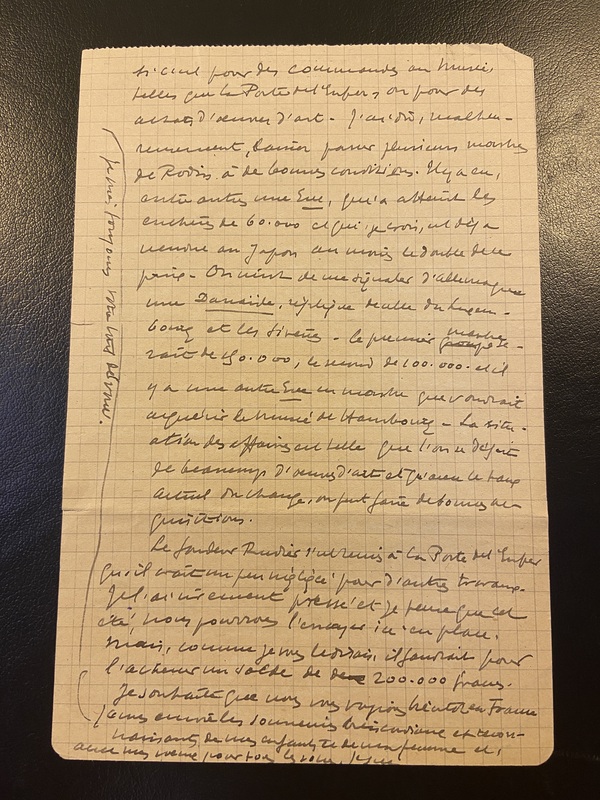 si c'est pour des commandes au Musée,
telles que la Porte de l'Enfer, ou pour des
achats d'œuvres d'art. J'ai dû, malheu-
reusement, laisser passer plusieurs marbres
de Rodin à de bonnes conditions. Il y a eu,
entre autres une Eve, qui a atteint les
enchères de 60.000 et qui, je crois, est déjà
vendue au Japon au moins le double de ce
prix. On vient de me signaler d'Allemagne
une Danaïde, réplique de celle du Luxem-
bourg et les Sirènes. Le premier marbre
rait de 150.000, le second de 100.000. et il
y a une autre Eve en marbre que voudrait
acquérir le musée de Hambourg. La situ-
ation des affaires est telle que l'on se défait
de beaucoup d'œuvres d'art et qu'avec le taux
actuel du change, on peut faire de bonnes ac-
quisitions.
Le fondeur Rudier s'est remis à la Porte de l'Enfer
qu'il avait un peu négligée pour d'autres travaux.
Je l'ai vivement pressé et je pense que cet
été, nous pourrons l'envoyer ici en place.
Mais, comme je vous le disais, il faudrait pour
l'achever un solde de 200.000 francs.
Je souhaite que nous vous voyions bientôt en France
je vous envoie les souvenirs très cordiaux et recon-
naissants de mes enfants et de ma femme et,
avec mes vœux pour